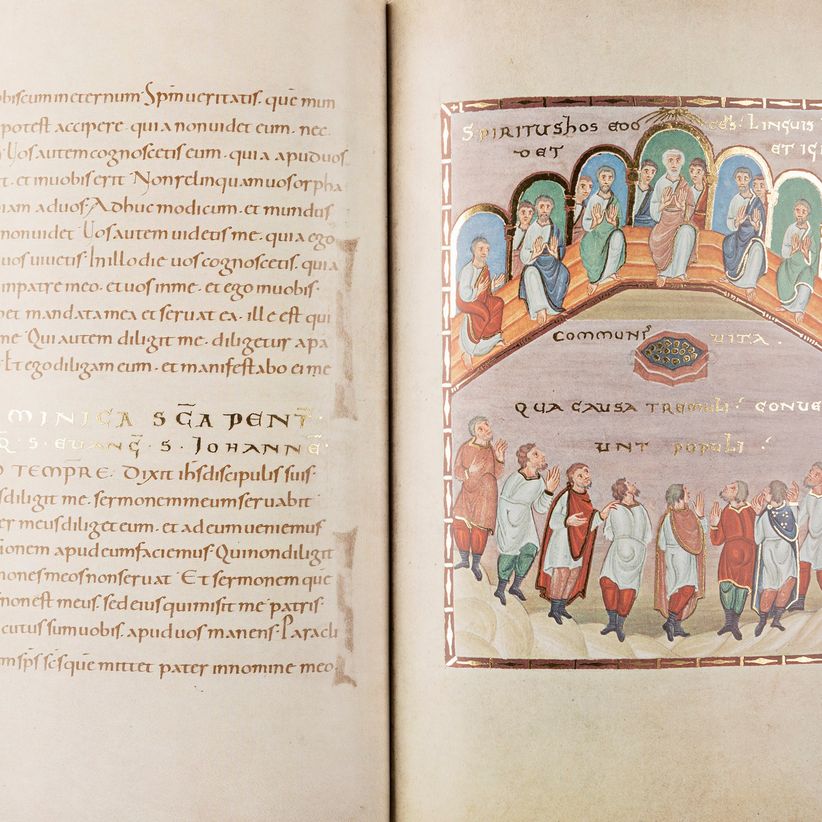 obiscum in eternum· Sp̄m ueritatis· quē mun
potest accipere· quia non uidet eum· nec
Uos autem cognoscetis eum· quia apud uos
t· et in uobis erit Non relinquam uos orpha
iam ad uos· Adhuc modicum· et mundus
non uidet Uos autem uidetis me· quia ego
uos uiuetis· In illo die uos cognoscetis· quia
in patre meo· et uos in me· et ego in uobis·
et mandata mea et seruat ea· ille est qui
me Qui autem diligit me· diligetur a pa
Et ego diligam eum· et manifestabo ei me
MINICA SC̄A PENT̄·
S· EUANḠ· S· IOHANNĒ·
TEMPR̄E· Dixit ih̄s discipulis suis·
s diligit me· sermonem meum seruabit
er meus diliget eum· et ad eum ueniemus
ionem apud eum faciemus· Qui non diligit
mones meos non seruat· Et sermonem quē
non est meus· sed eius qui misit me patris·
cutus sum uobis· apud uos manens· Paracli
m sp̄s sc̄s quē mittet pater in nomine meo
SPIRITUS HOS EOO LINGUIS
DET ET IGN
COMMUNIS UITA·
QUA CAUSA TREMULI· CONUE
UNT POPULI·